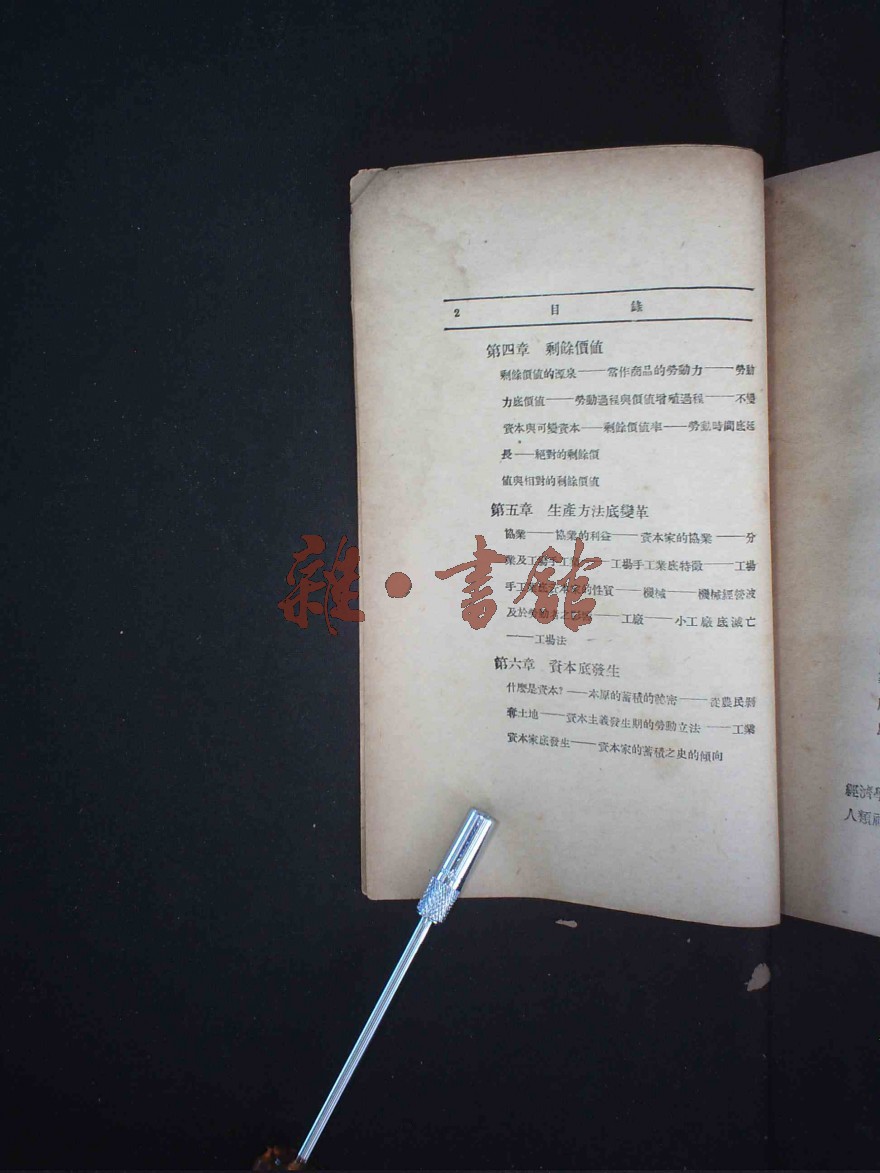 2 目錄
第四章 剩餘價值
剩餘價值的源泉——當作商品的勞動力——勞動
力底價值——勞動過程與價值增殖過程——不變
資本與可變資本——剩餘價值率——勞動時間底延
長——絕對的剩餘價
值與相對的剩餘價值
第五章 生產方法底變革
協業——協業的利益——資本家的協業——分
業及工場手工業——工場手工業底特徵——工場
手工業底資本家的性質——機械——機械經營波
及於勞動者之——工廠——小工廠底滅亡
——工場法
第六章 資本底發生
什麼是資本?——本原的蓄積的祕密——從農民剝
奪土地——資本主義發生期的勞動立法——工業
資本家底發生——資本家的蓄積之史的傾向
雜·書館
經濟學
人類